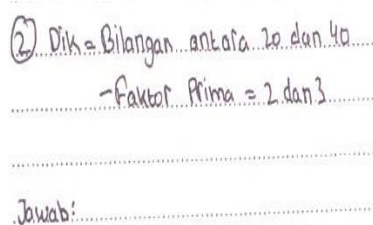 2 Dik = Bilangan antara 20 dan 40
- Faktor Prima = 2 dan 3
Jawab: